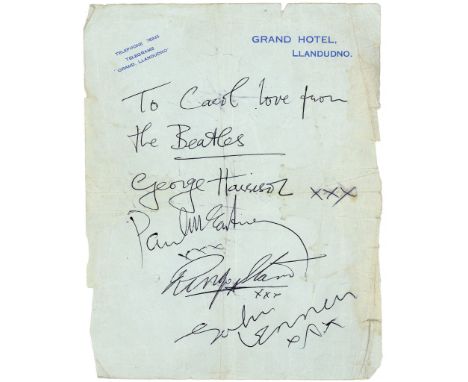 TELEPHONE 76245
TELEGRAMS
"GRAND, LLANDUDNO"
GRAND HOTEL,
LLANDUDNO.
To Carol love from
the Beatles
George Harrison xxx
Paul McCartney
xxx
Ringo Starr
xxx
John Lennon
xxx